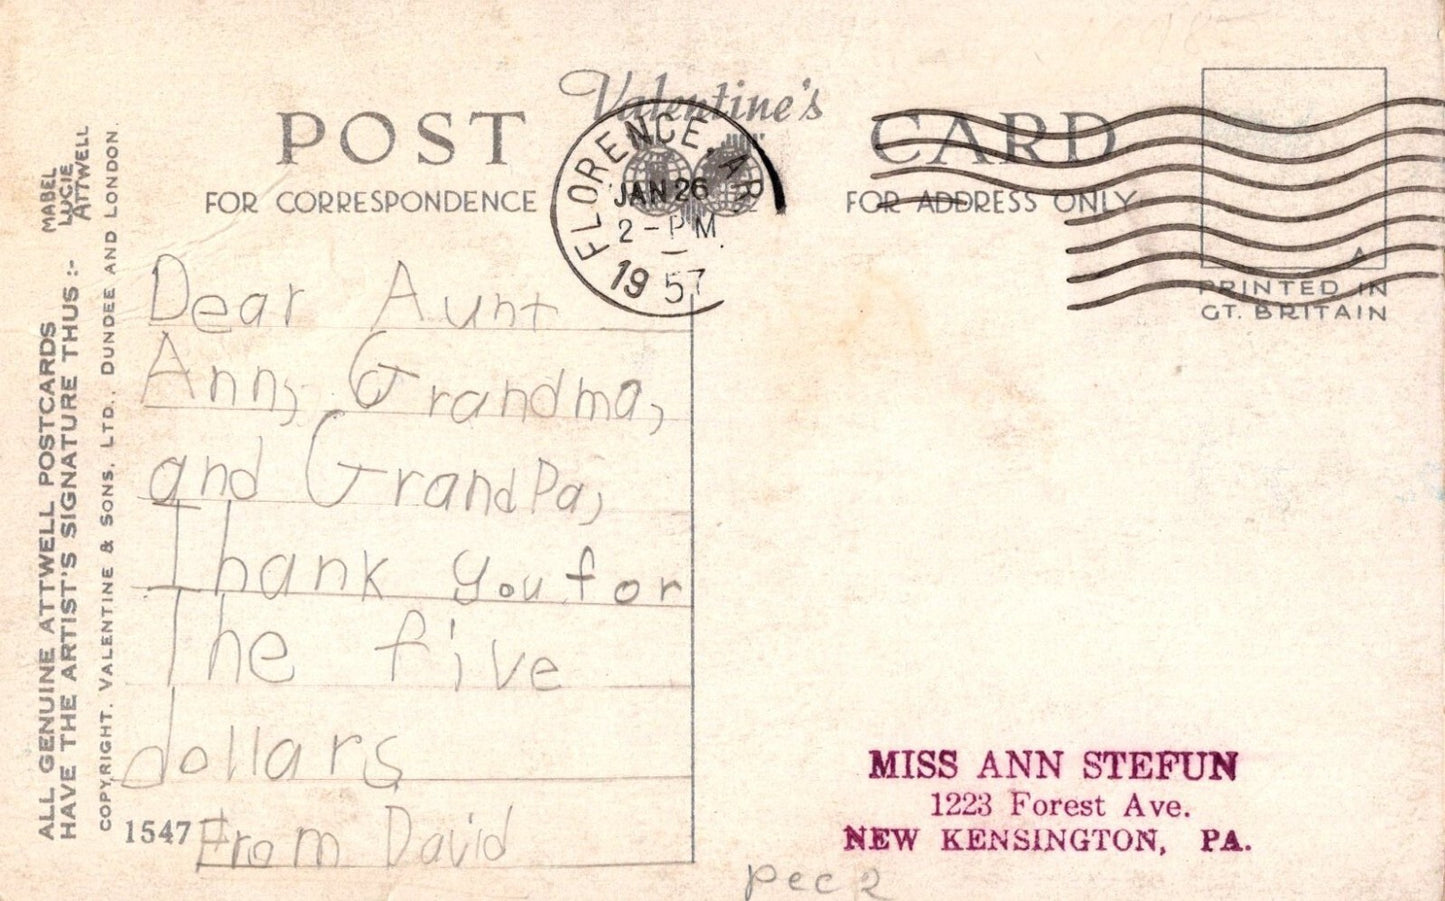 Valentine's
POST CARD
FOR CORRESPONDENCE
FOR ADDRESS ONLY
FLORENCE, AR
JAN 26
2 - PM
1957
PRINTED IN
GT. BRITAIN
ALL GENUINE ATTWELL POSTCARDS
HAVE THE ARTIST'S SIGNATURE THUS :-
MABEL
LUCIE
ATTWELL
COPYRIGHT. VALENTINE & SONS, LTD., DUNDEE AND LONDON.
Dear Aunt
Ann, Grandma,
and GrandPa,
Thank you for
The five
dollars
From David
1547
MISS ANN STEFUN
1223 Forest Ave.
NEW KENSINGTON, PA.
pec 2